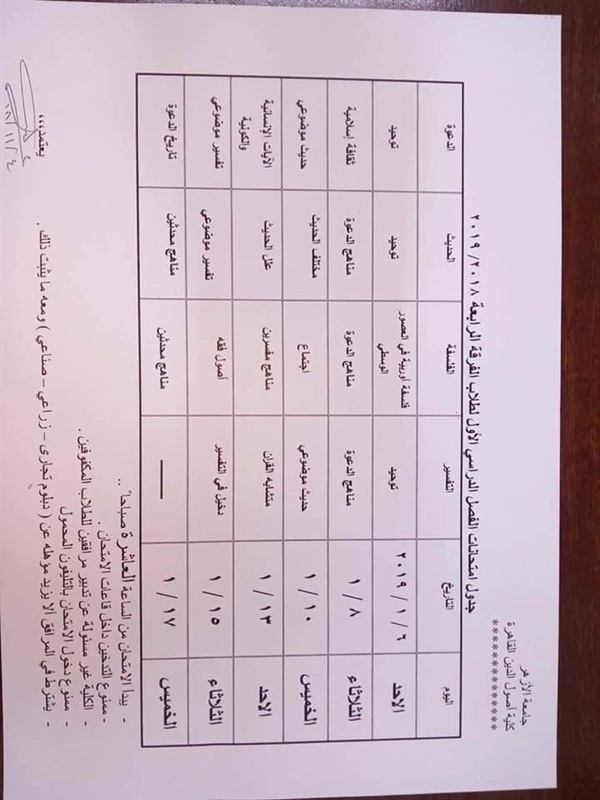 جامعة الأزهر
كلية أصول الدين القاهرة
**************
جدول امتحانات الفصل الدراسي الأول لطلاب الفرقة الرابعة ٢٠١٨/ ٢٠١٩
اليوم التاريخ التفسير الفلسفة الحديث الدعوة
الاحد ٦ / ١ / ٢٠١٩ توحيد فلسفة أوربية في العصور الوسطي توحيد توحيد
الثلاثاء ٨ / ١ مناهج الدعوة مناهج الدعوة مناهج الدعوة ثقافة إسلامية
الخميس ١٠ / ١ حديث موضوعي اجتماع مختلف الحديث حديث موضوعي
الاحد ١٣ / ١ متشابه القران مناهج مفسرين علل الحديث الآيات الإنسانية والكونية
الثلاثاء ١٥ / ١ دخيل في التفسير أصول فقه تفسير موضوعي تفسير موضوعي
الخميس ١٧ / ١ ــــــ مناهج محدثين مناهج محدثين تاريخ الدعوة
- يبدأ الامتحان من الساعة العاشرة صباحا ..
- ممنوع التدخين داخل قاعات الامتحان .
- الكلية غير مسئولة عن تدبير مرافقين للطلاب المكفوفين .
- ممنوع دخول الامتحان بالتليفون المحمول
- يشترط في المرافق ألا يزيد مؤهله عن ( دبلوم تجارى – زراعي – صناعي ) ومعه ما يثبت ذلك .
يعتمد،،،